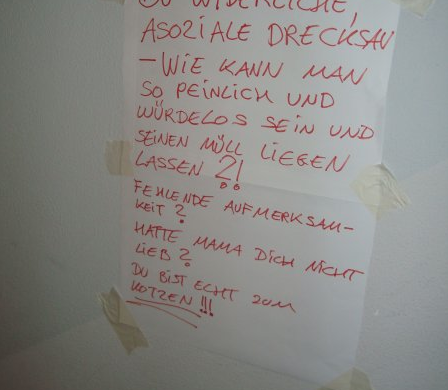 DU WIDERLICHE,
ASOZIALE DRECKSAU
– WIE KANN MAN
SO PEINLICH UND
WÜRDELOS SEIN UND
SEINEN MÜLL LIEGEN
LASSEN ?!
FEHLENDE AUFMERKSAM-
KEIT ?
HATTE MAMA DICH NICHT
LIEB ?
DU BIST ECHT ZUM
KOTZEN !!!